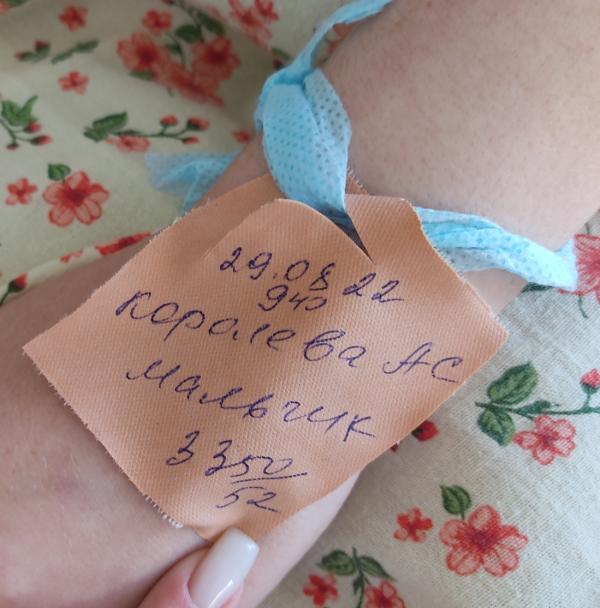 29.08 22
9 40
Королева АС
мальчик
3350/52